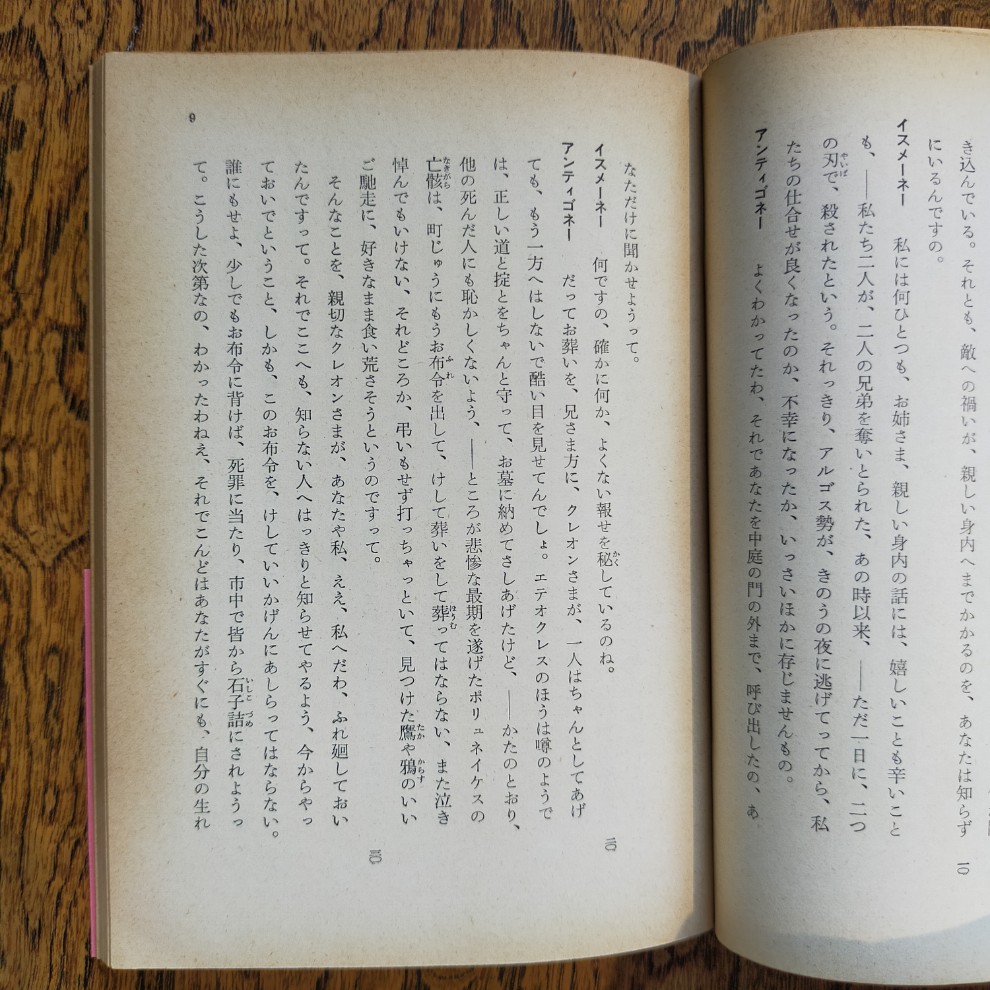 き込んでいる。それとも、敵への禍いが、親しい身内へまでかかるのを、あなたは知らず
にいるんですの。
イスメーネー　私には何ひとつも、お姉さま、親しい身内の話には、嬉しいことも辛いこと
も、――私たち二人が、二人の兄弟を奪いとられた、あの時以来、――ただ一日に、二つ
の刃で、殺されたという。それっきり、アルゴス勢が、きのうの夜に逃げてってから、私
たちの仕合せが良くなったのか、不幸になったか、いっさいほかに存じませんもの。
アンティゴネー　よくわかってたわ、それであなたを中庭の門の外まで、呼び出したの、あ
一〇
なただけに聞かせようって。
イスメーネー　何ですの、確かに何か、よくない報せを秘しているのね。
アンティゴネー　だってお葬いを、兄さま方に、クレオンさまが、一人はちゃんとしてあげ
ても、もう一方へはしないで酷い目を見せてんでしょ。エテオクレスのほうは噂のようで
は、正しい道と掟とをちゃんと守って、お墓に納めてさしあげたけど、――かたのとおり、
他の死んだ人にも恥かしくないよう、――ところが悲惨な最期を遂げたポリュネイケスの
亡骸は、町じゅうにもうお布令を出して、けして葬いをして葬ってはならない、また泣き
悼んでもいけない、それどころか、弔いもせず打っちゃっといて、見つけた鷹や鴉のいい
ご馳走に、好きなまま食い荒さそうというのですって。
そんなことを、親切なクレオンさまが、あなたや私、ええ、私へだわ、ふれ廻しておい
たんですって。それでここへも、知らない人へはっきりと知らせてやるよう、今からやっ
ておいでということ、しかも、このお布令を、けしていいかげんにあしらってはならない。
誰にもせよ、少しでもお布令に背けば、死罪に当たり、市中で皆から石子詰にされようっ
て。こうした次第なの、わかったわねえ、それでこんどはあなたがすぐにも、自分の生れ
二〇
三〇
9